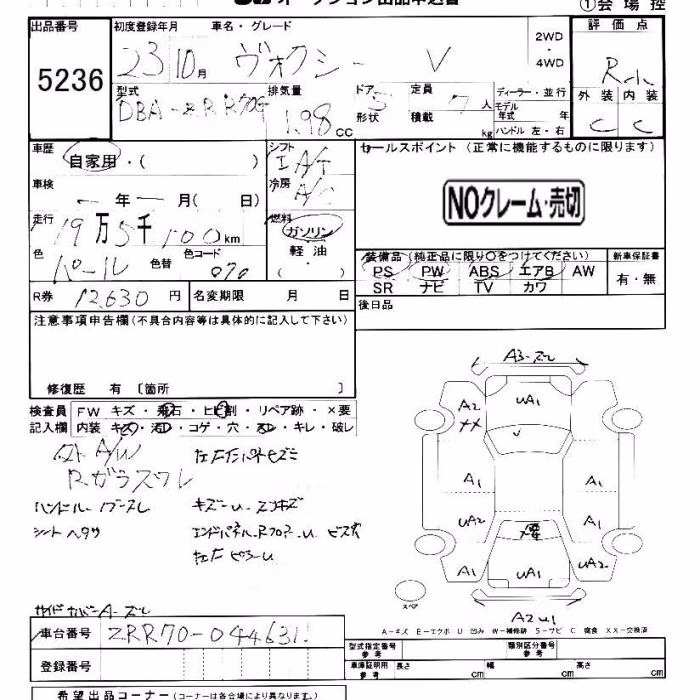 オークション出品申込書
①会場控
出品番号
5236
初度登録年月 車名・グレード
23 10月 ヴォクシー V
2WD
4WD
評価点
外装 内装
C C
型式 排気量 ドア 定員 ディーラー・並行
DBA-ZRR70G 1.98 CC 5 形状 7人 積載 kg
モデル年式 年
ハンドル 左・右
車歴
自家用・( )
シフト
車検
年 月( 日)
冷房
走行
19万5千100km
燃料
ガソリン
軽油
・( )
色 色替 色コード
パール 070
R券 12,630円 名変期限 月 日
セールスポイント (正常に機能するものに限ります)
NOクレーム・売切
装備品 (純正品に限り○をつけてください) 新車保証書
PS PW ABS エアB AW
SR ナビ TV カワ
有・無
後日品
注意事項申告欄(不具合内容等は具体的に記入して下さい)
修復歴 有 〔箇所 〕
検査員記入欄
FW キズ・飛石・ヒビ割・リペア跡・×要
内装 キズ・汚レ・コゲ・穴・スレ・キレ・破レ
社A/W
Rガラスワレ
シートヘタリ
A3
UA1
A2
A1
A1
UA2
A1
A1
UA1
UA2
スペア
A-キズ E-エクボ U 凹み W-補修跡 S-サビ C 腐食 XX-交換済
車台番号 ZRR70-0446311
登録番号
型式指定番号 参考
類別区分番号 参考
車庫証明用 参考 長さ cm 幅 cm 高さ cm
希望出品コーナー (コーナーは各会場により異なります。)